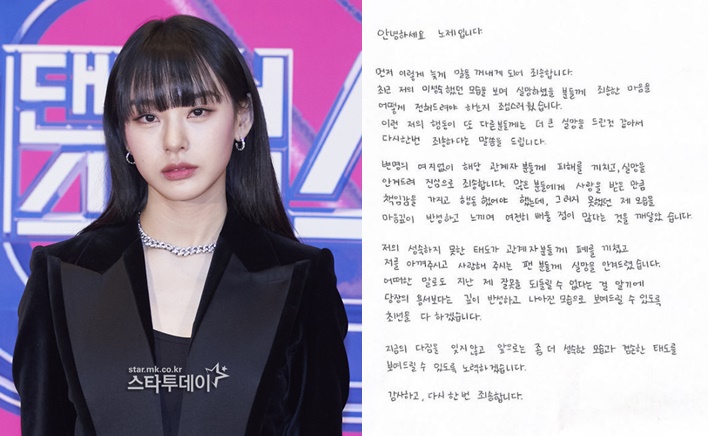 댄
star.mk.co.kr
스타투데이
안녕하세요 노제입니다.
먼저 이렇게 늦게 말을 꺼내게 되어 죄송합니다.
최근 저의 미성숙했던 모습을 보며 실망하셨을 분들께 죄송한 마음을
어떻게 전해드려야 하는지 조심스러웠습니다.
이런 저의 행동이 또 다른분들께는 더 큰 실망을 드린것 같아서
다시한번 죄송하다는 말씀을 드립니다.
변명의 여지없이 해당 관계자분들께 피해를 끼치고, 실망을
안겨드려 진심으로 죄송합니다. 많은 분들에게 사랑을 받은 만큼
책임감을 가지고 행동 했어야 했는데, 그러지 못했던 제 모습을
마음깊이 반성하고 느끼며 여전히 배울 점이 많다는 것을 깨달았습니다.
저의 성숙하지 못한 태도가 관계자분들께 폐를 끼쳤고
저를 아껴주시고 사랑해 주시는 팬 분들께 실망을 안겨드렸습니다.
어떠한 말로도 지난 제 잘못을 되돌릴 수 없다는 걸 알기에
당장의 용서보다는 깊이 반성하고 나아진 모습으로 보여드릴 수 있도록
최선을 다 하겠습니다.
지금의 다짐을 잊지않고 앞으로는 좀 더 성숙한 모습과 겸손한 태도를
보여드릴 수 있도록 노력하겠습니다.
감사하고, 다시 한번 죄송합니다.